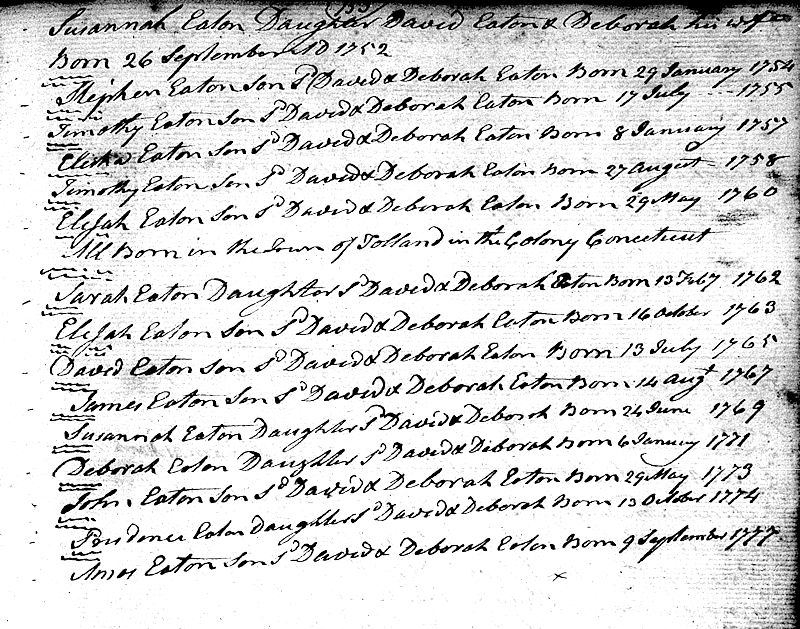 Susannah Eaton Daughter David Eaton & Deborah his wife
Born 26 September AD 1752
Stephen Eaton Son Sd David & Deborah Eaton Born 29 January 1754
Timothy Eaton Son Sd David & Deborah Eaton Born 17 July 1755
Elisha Eaton Son Sd David & Deborah Eaton Born 8 January 1757
Timothy Eaton Son Sd David & Deborah Eaton Born 27 August 1758
Elijah Eaton Son Sd David & Deborah Eaton Born 29 May 1760
All Born in the Town of Tolland in the Colony Conecticut
Sarah Eaton Daughter Sd David & Deborah Eaton Born 13 1762
Elijah Eaton Son Sd David & Deborah Eaton Born 16 October 1763
David Eaton Son Sd David & Deborah Eaton Born 13 July 1765
James Eaton Son Sd David & Deborah Eaton Born 14 Augt 1767
Susannah Eaton Daughter Sd David & Deborah Born 24 June 1769
Deborah Eaton Daughter Sd David & Deborah Born 6 January 1771
John Eaton Son Sd David & Deborah Eaton Born 29 May 1773
Prudence Eaton Daughter Sd David & Deborah Born 13 October 1774
Amos Eaton Son Sd David & Deborah Eaton Born 9 September 1777